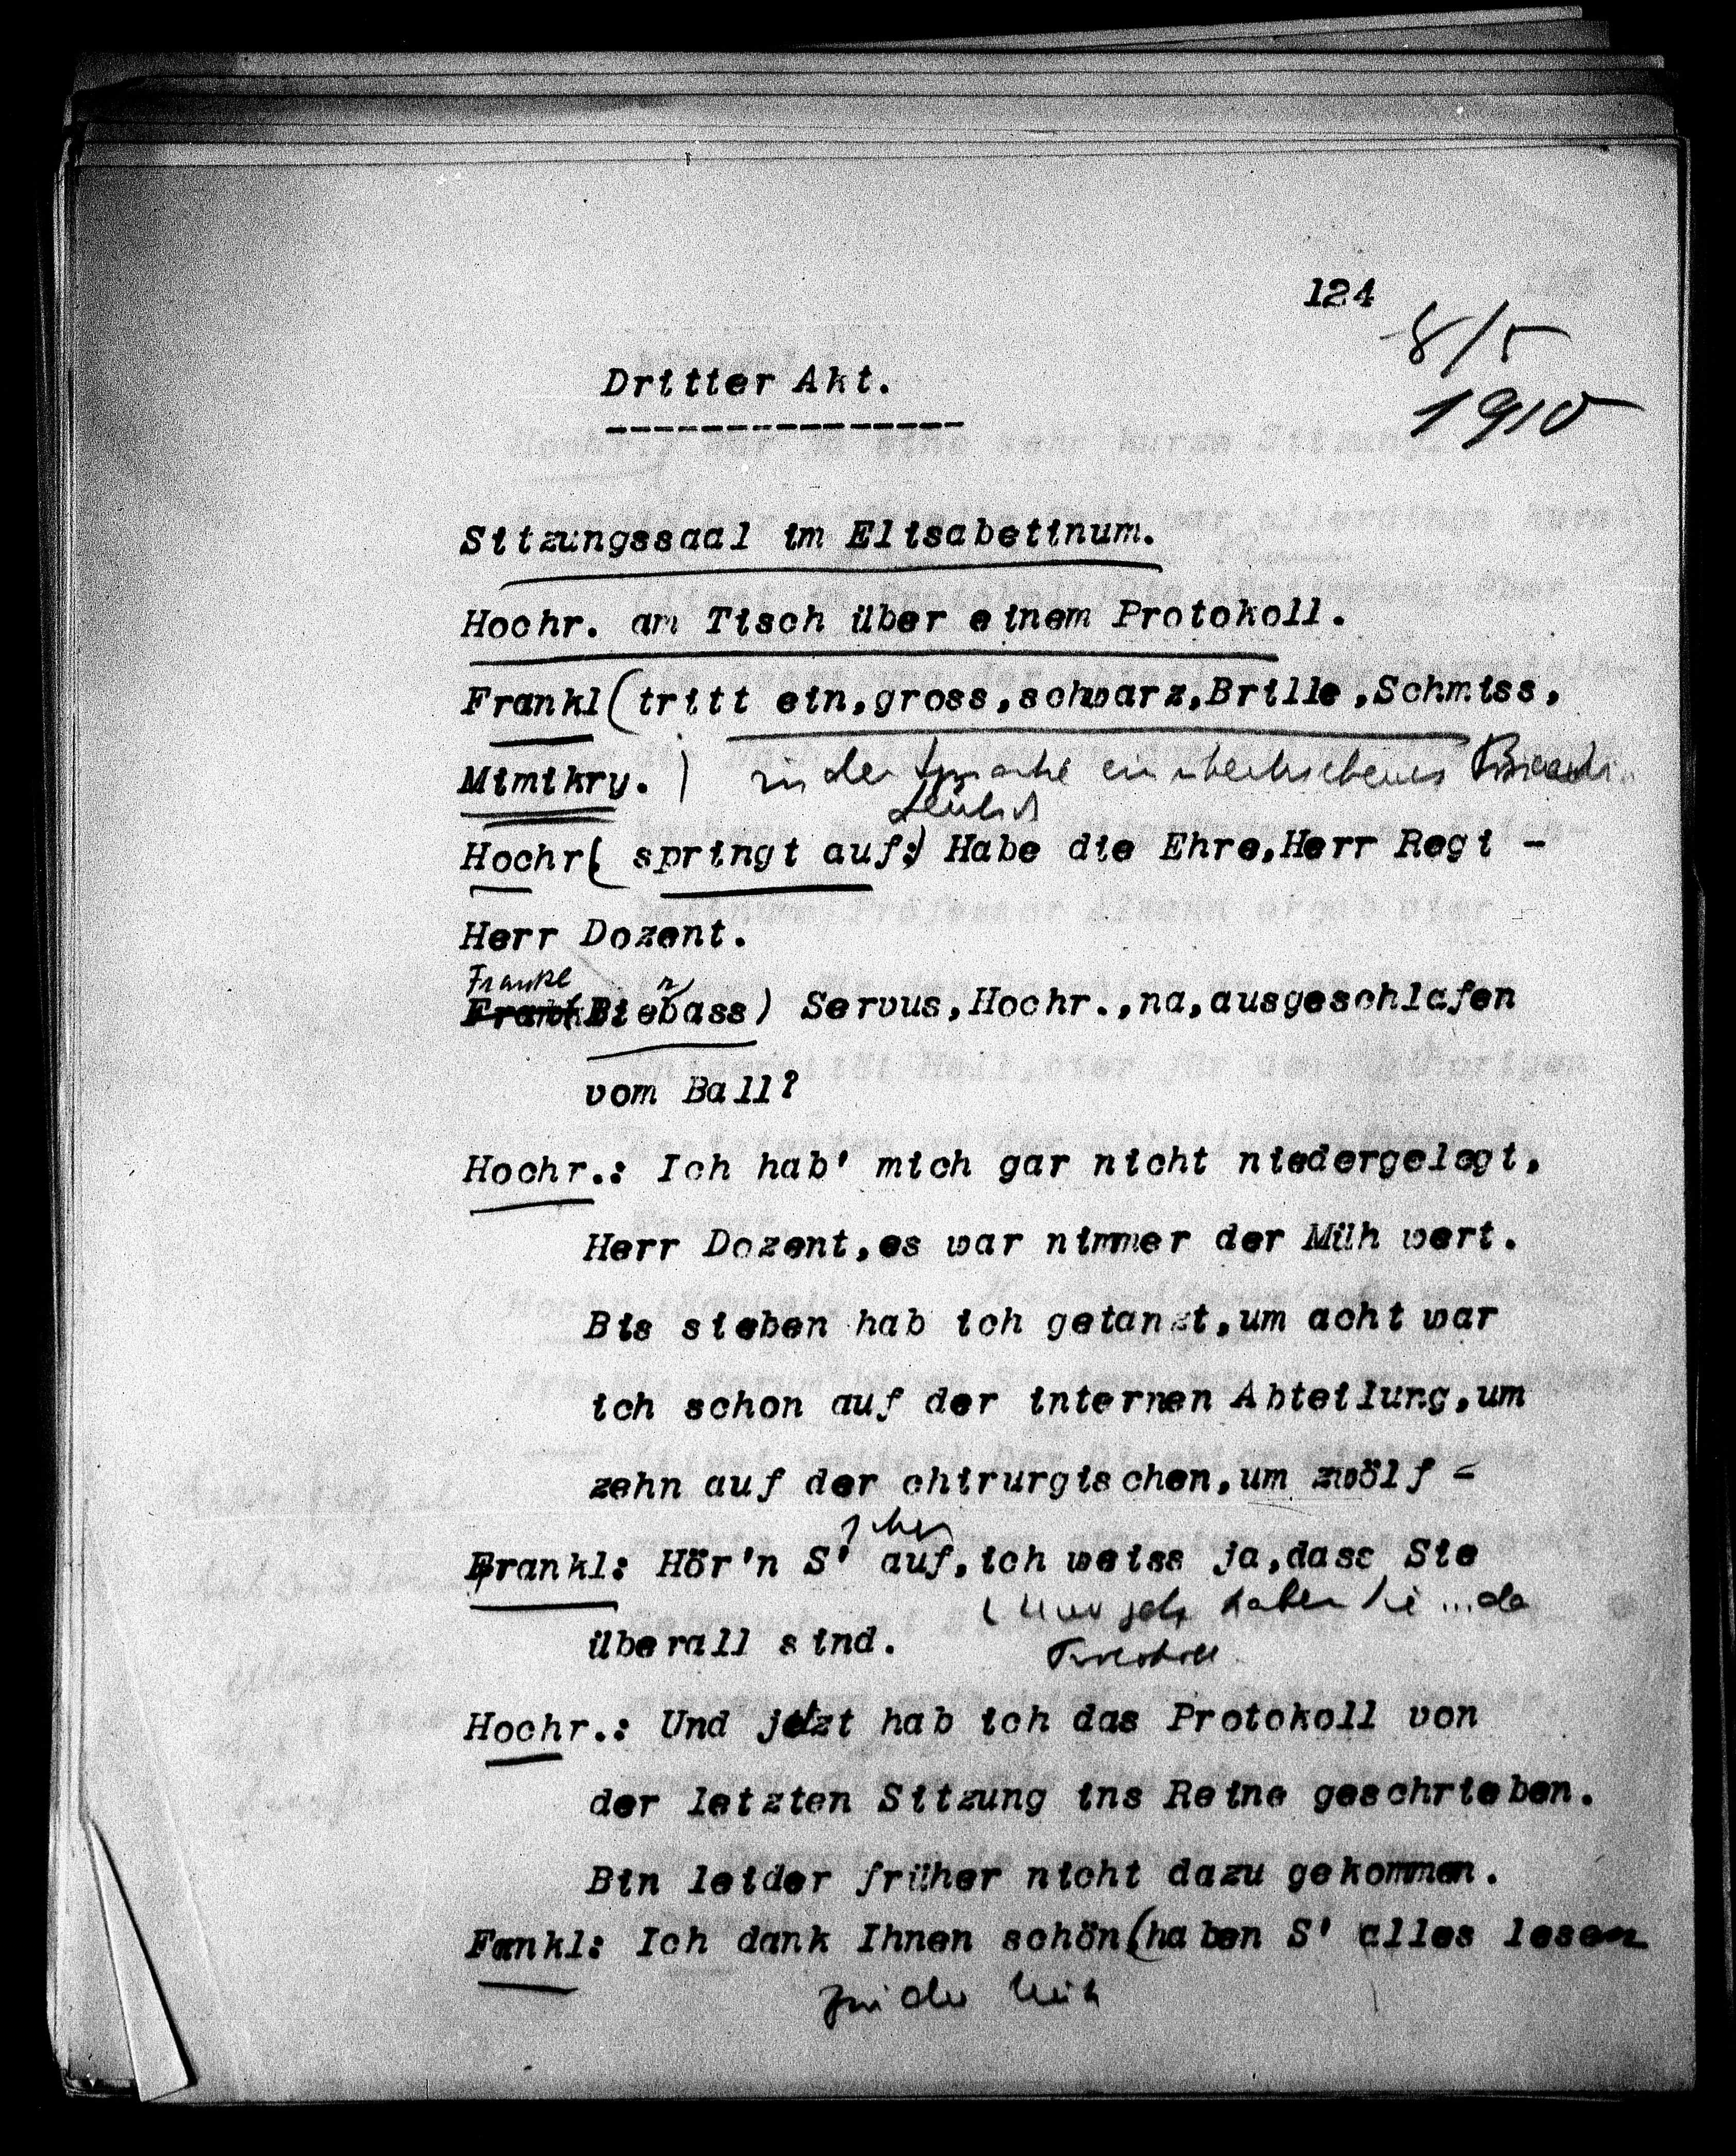 124
8/5
1910
Dritter Akt.
Sitzungssaal im Elisabetinum.
Hochr. am Tisch über einem Protokoll.
Frankl (tritt ein,gross,schwarz,Brille,Schmiss,
Mimikry. ) in der Sprache ein übertriebenes
Hochr( springt auf:) Habe die Ehre,Herr Regi -
Herr Dozent.
Frankl
(Bierbass) Servus,Hochr.,na,ausgeschlafen
vom Ball?
Hochr.: Ich hab' mich gar nicht niedergelegt,
Herr Dozent,es war nimmer der Müh wert.
Bis sieben hab ich getanzt,um acht war
ich schon auf der internen Abteilung,um
zehn auf der chirurgischen,um zwölf -
schon
Frankl: Hör'n S' auf,ich weiss ja,dass Sie
überall sind.
( Und jetzt haben Sie ... da
Protokoll
Hochr.: Und jetzt hab ich das Protokoll von
der letzten Sitzung ins Reine geschrieben.
Bin leider früher nicht dazu gekommen.
Fankl: Ich dank Ihnen schön(haben S' alles lesen